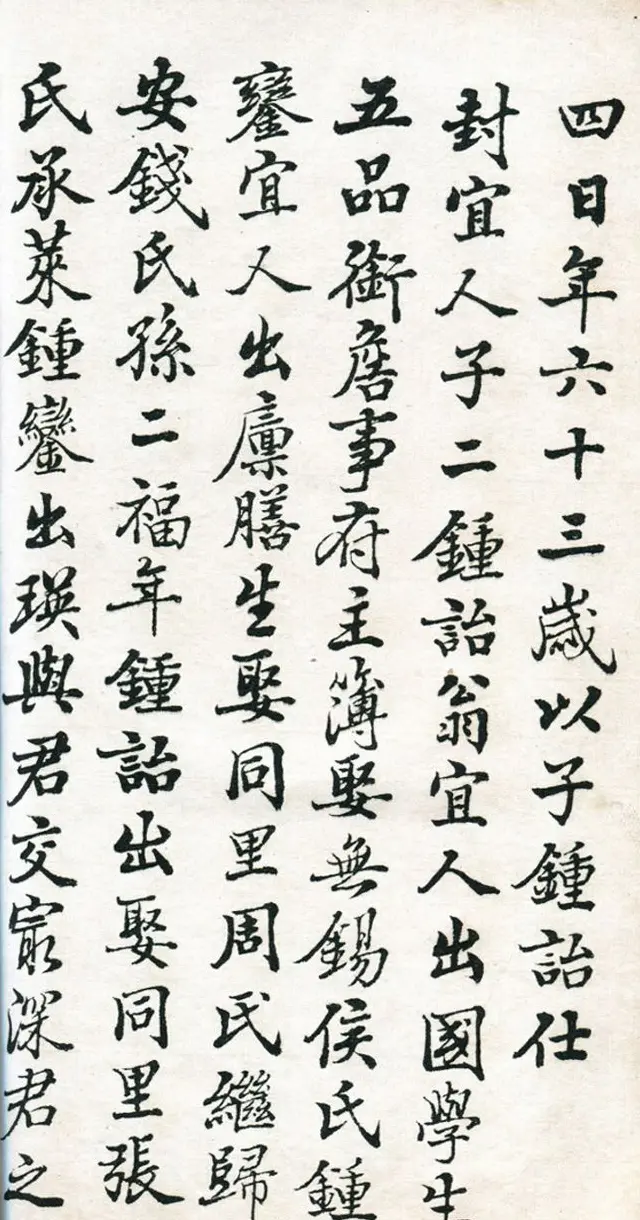 四日年六十三歲以子鍾詒仕
封宜人子二鍾詒翁宜人出國學生
五品銜詹事府主簿娶無錫侯氏鍾
鑾宜人出廩膳生娶同里周氏繼歸
安錢氏孫二福年鍾詒出娶同里張
氏承萊鍾鑾出瑛與君交冣深君之